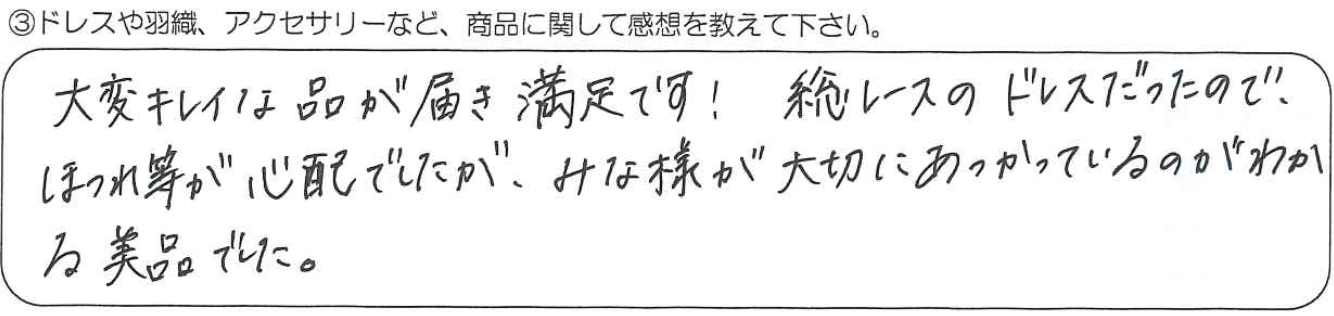 ③ドレスや羽織、アクセサリーなど、商品に関して感想を教えて下さい。
大変キレイな品が届き満足です! 総レースのドレスだったので、
ほつれ等が心配でしたが、みな様が大切にあつかっているのがわか
る美品でした。